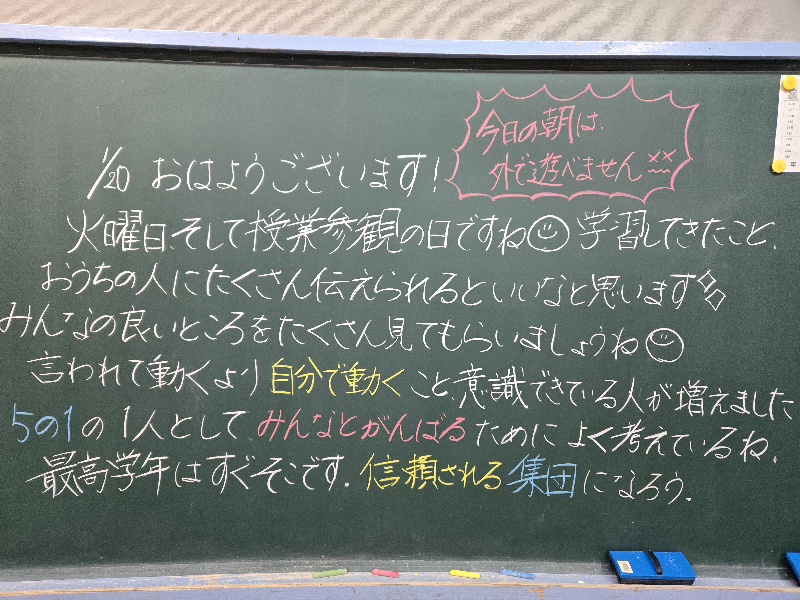 今日の朝は、
外で遊べません
1/20 おはようございます!
火曜日、そして授業参観の日ですね 学習してきたこと、
おうちの人にたくさん伝えられるといいなと思います
みんなの良いところをたくさん見てもらいましょうね
言われて動くより自分で動くこと、意識できている人が増えました
5の1の1人として、みんなとがんばるためによく考えているね。
最高学年はすぐそこです。信頼される集団になろう。